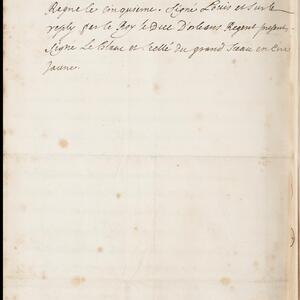 Regne le cinquieme. Signé Louis et sur le
reply par le Roy le Duc D'orleans Regent present,
Signé Le Blanc et scellé du grand Sceau en Cire
Jaune.